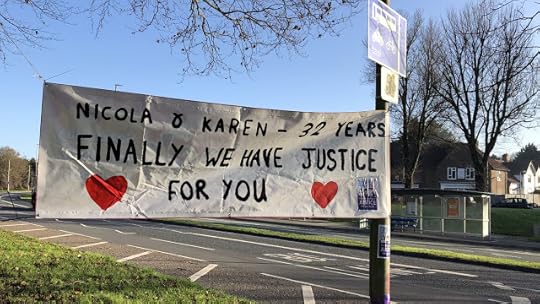 NICOLA & KAREN - 32 YEARS
FINALLY WE HAVE JUSTICE
FOR YOU